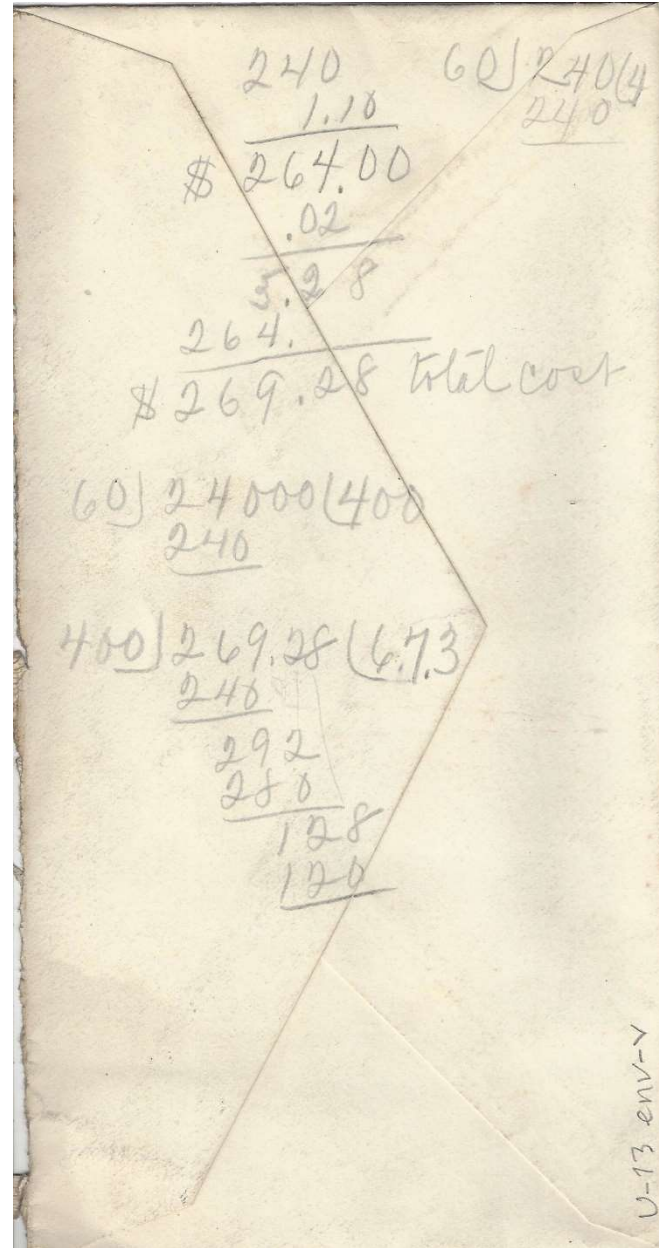 240
1.10
$ 264.00
.02
5.28
264.
$ 269.28 total cost
60) 240 (4
240
60) 24000 (400
240
400) 269.28 (6.7.3
240
292
280
128
120
U-13 env-v